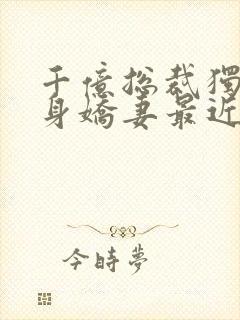 千億總裁獨
身嬌妻最近
今時夢